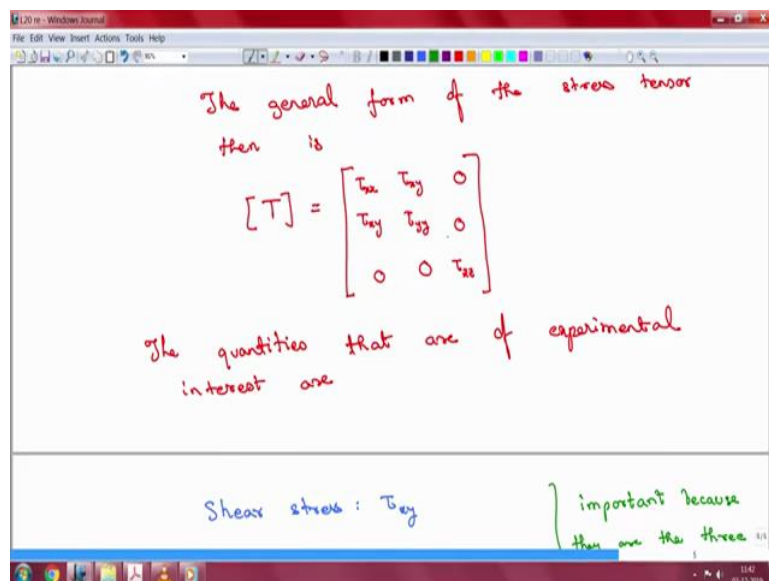 L20 re - Windows Journal
File Edit View Insert Actions Tools Help
The general form of the stress tensor
then is
[T] = [ τxx τxy 0
τxy τyy 0
0 0 τzz ]
The quantities that are of experimental
interest are
Shear stress : τxy } important because
they are the three
11:42